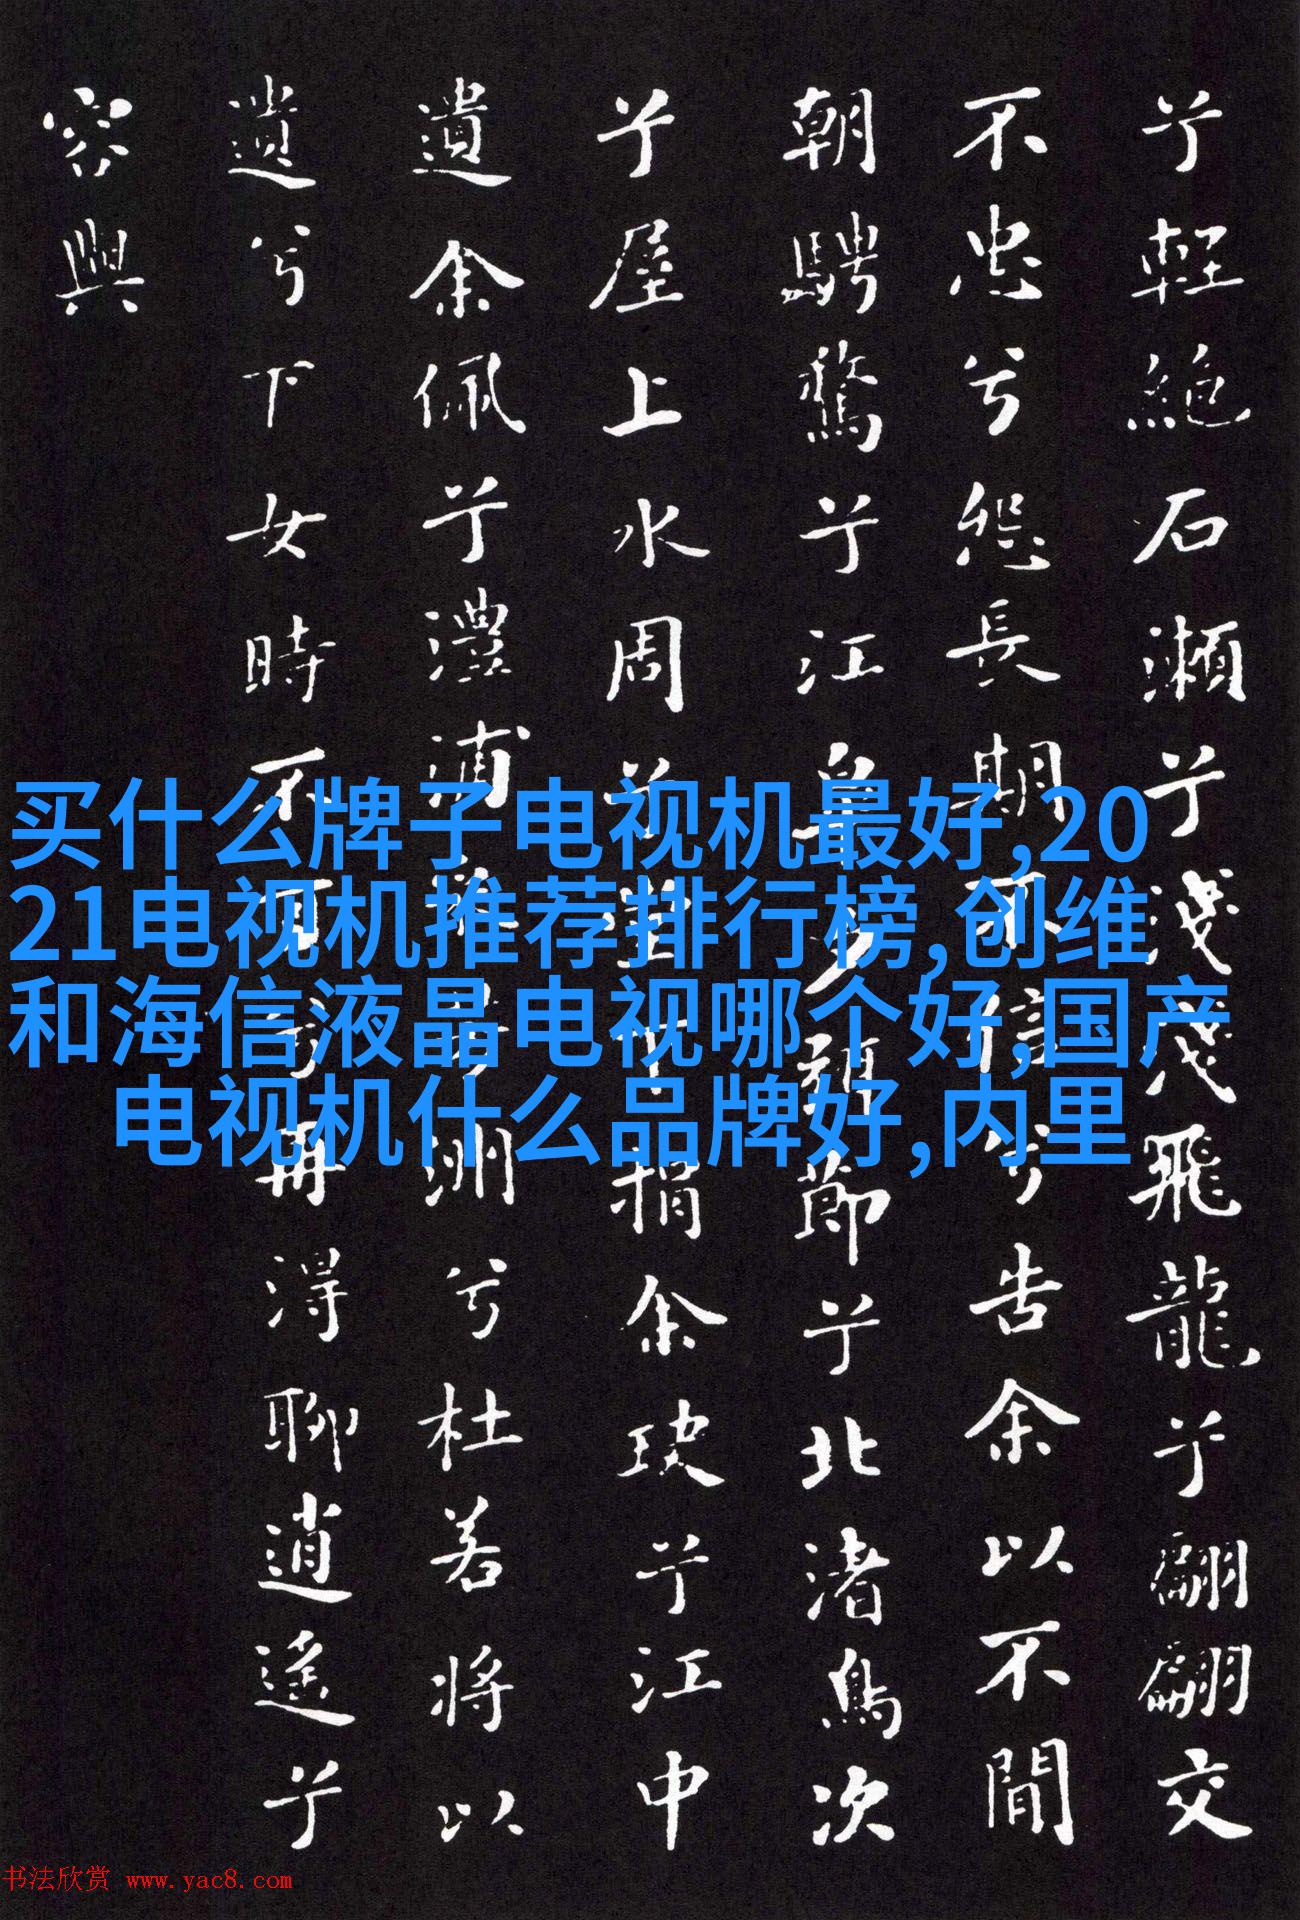 兮輕絕石瀨兮淺淺飛龍兮翩翩交
不忠兮怨長期不信兮告余以不間
朝騁驁兮江皋夕弭節兮北渚鳥次
兮屋上水周兮堂下捐余玦兮江中
遺余佩兮澧浦搴芳洲兮杜若將以
遺兮下女時不可兮再得聊逍遙兮
容與
买什么牌子电视机最好,20
21电视机推荐排行榜,创维
和海信液晶电视哪个好,国产
电视机什么品牌好,内里
书法欣赏 www.yac8.com